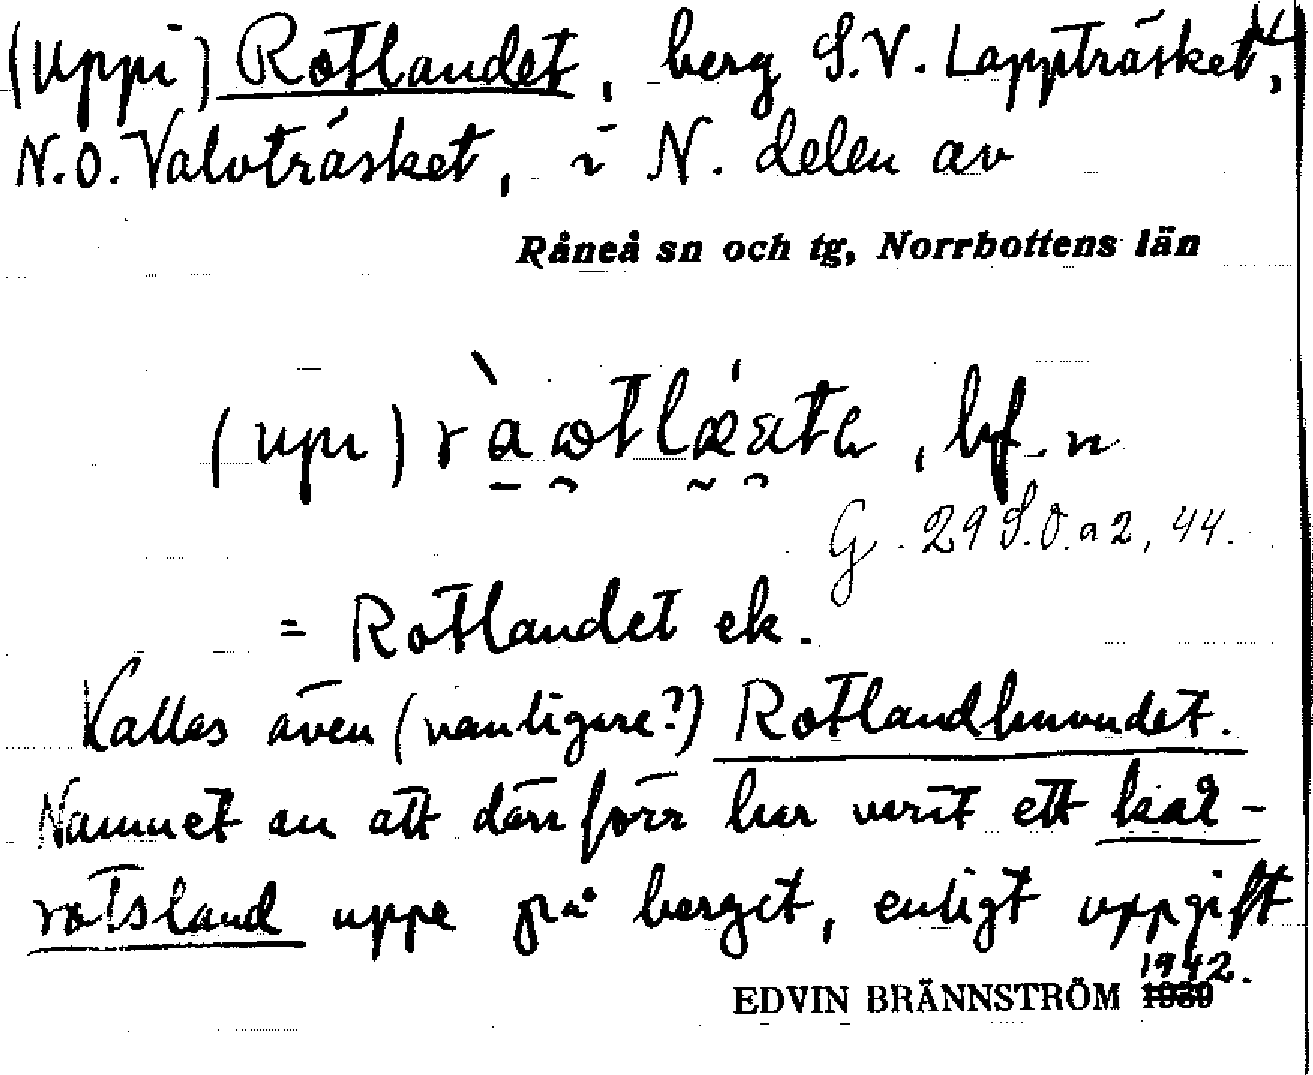 (Uppi) Rotlandet, berg S.V. Lappträsket,
N.O. Valvträsket, i N. delen av
Råneå sn och tg, Norrbottens län
(upi) , bf. n
G. 29 S.O. a 2, 44.
= Rotlandet ek.
Kallas även (vanligare?) Rotlandhuvudet.
Namnet av att där förr har varit ett kål-
rotsland uppe på berget, enligt uppgift
1942.
EDVIN BRÄNNSTRÖM 1939